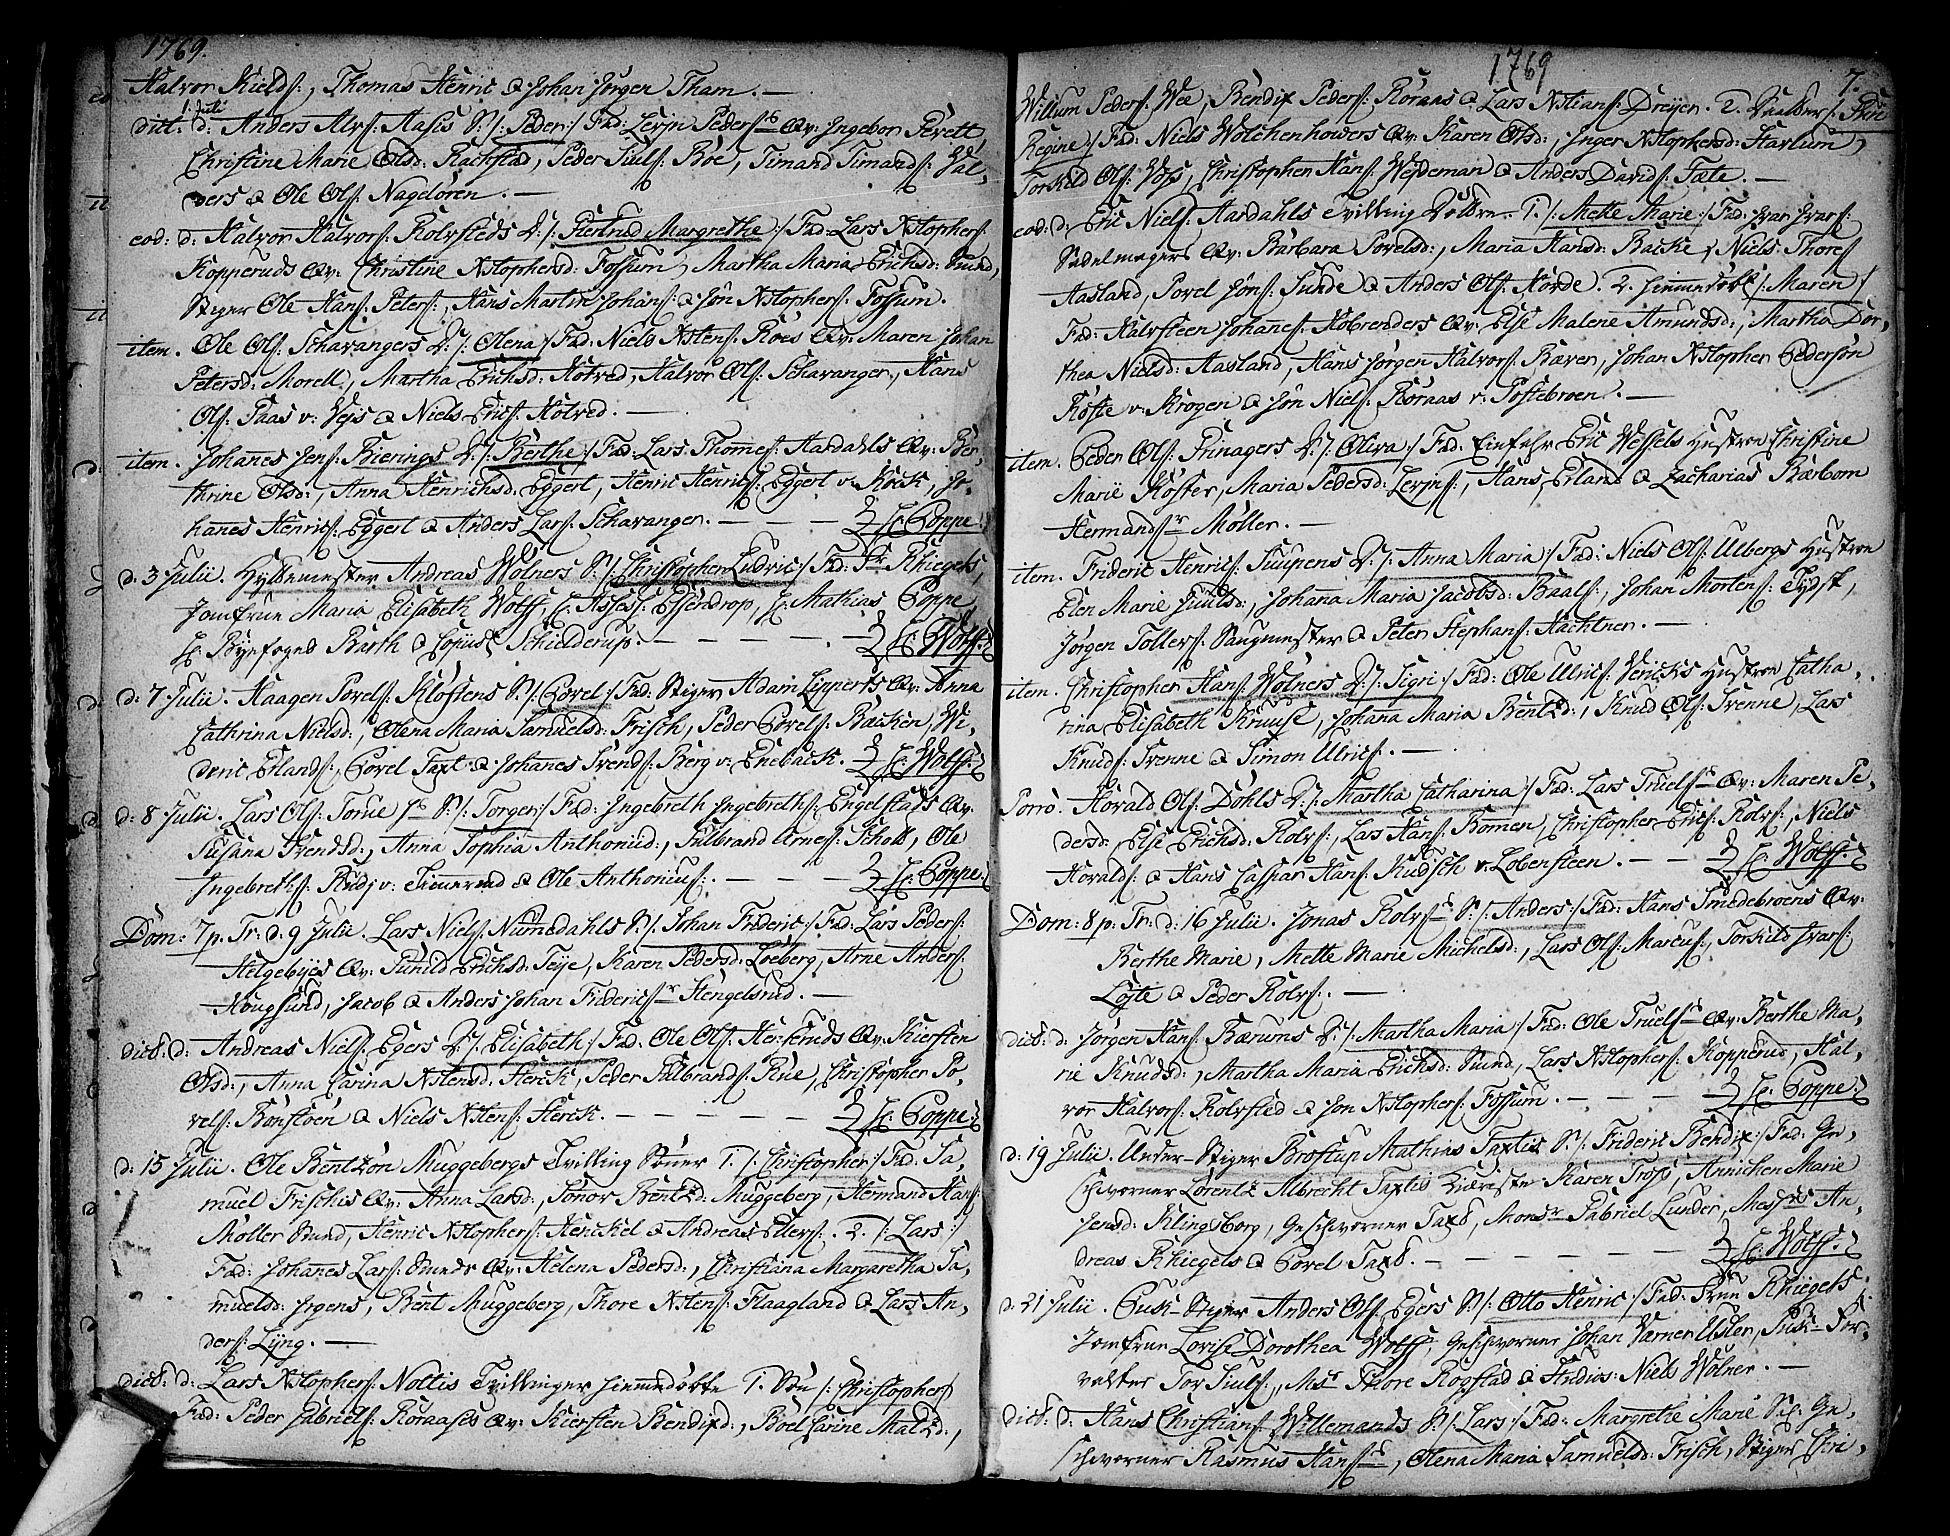 1769.
Halvor Kields:, Thomas Henric & Johan Jørgen Tham. —
1. Julii
dict: d: Anders Alfs: Aasis S: /: Peder :/ Fad: Lerjn Peders: Qv: Ingebor Perett,
Christine Marie Olsd: Rachstad, Peder Juuls: Boe, Timand Timands: Val-
ders & Ole Ols: Nageløren. —
eod: d: Halvor Halvors: Rolvsteds D: /: Giertrud Margrethe :/ Fad: Lars Xstophers:
Kopperuds Qv: Christine Xstophersd: Fossum, Martha Maria Erichsd: Smed,
Stiger Ole Hans: Peters:, Hans Martin Johans: & Jøn Xstophers: Fossum.
item. Ole Ols: Schavangers D: /: Olena :/ Fad: Niels Xstens: Roes Qv: Maren Johan
Petersd: Morell, Martha Erichsd: Hotved, Halvor Ols: Schavanger, Hans
Ols: Paas v: Vejs & Niels Erics: Hotved. —
item. Johanes Jens: Bierings D: /: Berthe :/ Fad: Lars Thomes: Aardahls Qv: Ber-
thrine Olsd:, Anna Henrichsd: Eggert, Henric Henrics: Eggert v: Kock, Jo-
hanes Henrics: Eggert & Anders Lars: Schavanger. — — — Hr: Coppe.
d: 3 Julii. Hyttemester Andreas Wølners S: /: Christopher Ludvic :/ Fad: Fr: Rhiegels,
Jomfrue Maria Elisabeth Wolff, Hr: Assess: Essendrop, Hr: Mathias Coppe
Hr: Byefoged Barth & Copiist Schielderup. — — — — Hr: Wolff.
d: 7 Julii. Haagen Povels: Kloftens S: /: Povel :/ Fad: Stiger Adam Lipperts Qv: Anna
Cathrina Nielsd:, Olena Maria Samuelsd: Frisch, Peder Povels: Backen, Wi-
deric Erlands:, Povel Taxt & Johanes Svends: Berg v: Eneback. — Hr: Wolff.
d: 8 Julii. Lars Ols: Torue S: /: Torgen :/ Fad: Ingebreth Ingebreths: Engelstads Qv:
Susana Svendsd:, Anna Sophia Anthoniid:, Gulbrand Arnes: Schott, Ole
Ingebreths: Rudj v: Timerud & Ole Anthonius:. — — — Hr: Coppe.
Dom: 7 p: Tr: d: 9 Julii. Lars Niels: Numedahls S: /: Johan Frideric :/ Fad: Lars Peders:
Helgebyes Qv: Gunild Erichsd: Teye, Karen Pedersd: Loeberg, Arne Anders:
Hougsund, Jacob & Anders Johan Friderics: Stengelsrud. —
dict: d: Andreas Niels: Egers D: /: Elisabeth :/ Fad: Ole Ols: Henseruds Qv: Kiersten
Olsd:, Anna Carina Xstensd: Sterck, Peder Gulbrands: Rue, Christopher Po-
vels: Bønstoen & Niels Xstens: Sterck. — — — — Hr: Coppe.
d: 15 Julii. Ole Bentzøn Muggebergs Tvilling Sønner 1. /: Christopher :/ Fad: Sa-
muel Frischis Qv: Anna Larsd:, Sonor Bentzd: Muggeberg, Hermand Hans:
Møller Smed, Henric Xstophers: Henckel & Andreas Ellers:. 2. /: Lars :/
Fad: Johanes Lars: Smeds Qv: Helena Pedersd:, Christiana Margaretha Sa-
muelsd: Jrgens, Bent Muggeberg, Thore Xstens: Flaagland & Lars An-
ders: Lyng. —
dict: d: Lars Xstophers: Noltis Tvillinger hiemedøbte 1. Søn /: Christopher :/
Fad: Peder Gabriels: Roraasis Qv: Kiersten Bendixd:, Boel Carine Matzd:,
1769 7.
Willum Peders: Wee, Bendix Peders: Roraas & Lars Xstians: Dreyer. 2. Daatter /: Ane
Regine :/ Fad: Niels Wolchenhowers Qv: Karen Olsd:, Inger Xstophersd: Starlum,
Torkild Ols: Voss, Christopher Hans: Weydeman & Anders Davids: Fæte. —
eod: d: Eric Niels: Aardahls Tvilling Døttre. 1. /: Mette Marie :/ Fad: Ivar Ivars:
Sadelmagers Qv: Barbara Povelsd:, Maria Hansd: Backe, Niels Thores:
Aasland, Povel Jøns: Sunde & Anders Ols: Horde. 2. hiemedøbt /: Maren :/
Fad: Halvsteen Johanes: Kobrenders Qv: Else Malene Amundsd:, Martha Dor-
thea Nielsd: Aasland, Hans Jørgen Halvors: Ræver, Johan Xstopher Pedersøn
Røste v: Krogen & Jøn Niels: Roraas v: Postebroen. —
item. Peder Ols: Prinagers D: /: Oliva :/ Fad: Einfahr Eric Wessels Hustrue Christine
Marie Køster, Maria Pedersd: Lerjns:, Hans Erland & Zacharias Barbom
Hermands: Møller. —
item. Frideric Henrics: Suupens D: /: Anna Maria :/ Fad: Niels Ols: Ulbergs Hustrue
Elen Marie Juulsd:, Johana Maria Jacobsd: Baals:, Johan Mortens: Tydst,
Jørgen Tollers: Saugmester & Peter Stephans: Hachtner. —
item. Christopher Hans: Wølners D: /: Sigri :/ Fad: Ole Ulrics: Vericks Hustrue Catha-
rina Elisabeth Kruuse, Johana Maria Bentzd:, Knud Ols: Svenne, Lars
Knuds: Svenne & Simon Ulrics:. —
Porro. Hovald Ols: Dohls D: /: Martha Catharina :/ Fad: Lars Truels: Qv: Maren Pe-
dersd:, Else Erichsd: Rolvs:, Lars Hans: Bomen, Christopher Erics: Rolvs:, Niels
Hovalds: & Hans Caspar Hans: Kudsch v: Løbensteen. — — Hr: Wolff.
Dom: 8 p: Tr: d: 16 Julii. Jonas Rolvs: S: /: Anders :/ Fad: Hans Smedebroens Qv:
Berthe Marie, Mette Marie Michelsd:, Lars Ols: Marcus:, Torkild Ivars:
Løyte & Peder Rolvs:. —
dict: d: Jørgen Hans: Bærums D: /: Martha Maria :/ Fad: Ole Truels: Qv: Berthe Ma-
rie Knudsd:, Martha Maria Erichsd: Smed, Lars Xstophers: Kopperud, Hal-
vor Halvors: Rolvsted & Jon Xstophers: Fossum. — — — Hr: Coppe.
d: 19 Julii. Under-Stiger Broskup Mathias Taxtis S: /: Frideric Bendix :/ Fad: Ge-
schworner Lorentz Albrecht Taxtis Kiæreste Karen Tross, Annichen Marie
Jensd: Klingsborg, Geschworner Taxt, Monsr Gabriel Lunder, Messrs An-
dreas Rhiegels & Povel Taxt. — — — — — Hr: Wolff.
d: 21 Julii. Pusk-Stiger Anders Ols: Egers S: /: Otto Henric :/ Fad: Frue Rhiegels,
Jomfrue Lovise Dorothea Wolff, Geschworner Johan Varner Usler, Pusk-For-
valter Tor Juuls:, Msr Thore Rogstad & Studios: Niels Wølner. —
dict: d: Hans Christians: Willemands S: /: Lars :/ Fad: Margrethe Marie Sl: Ge-
schworner Rasmus Hans:, Olena Maria Samuelsd: Frisch, Stiger Chri-